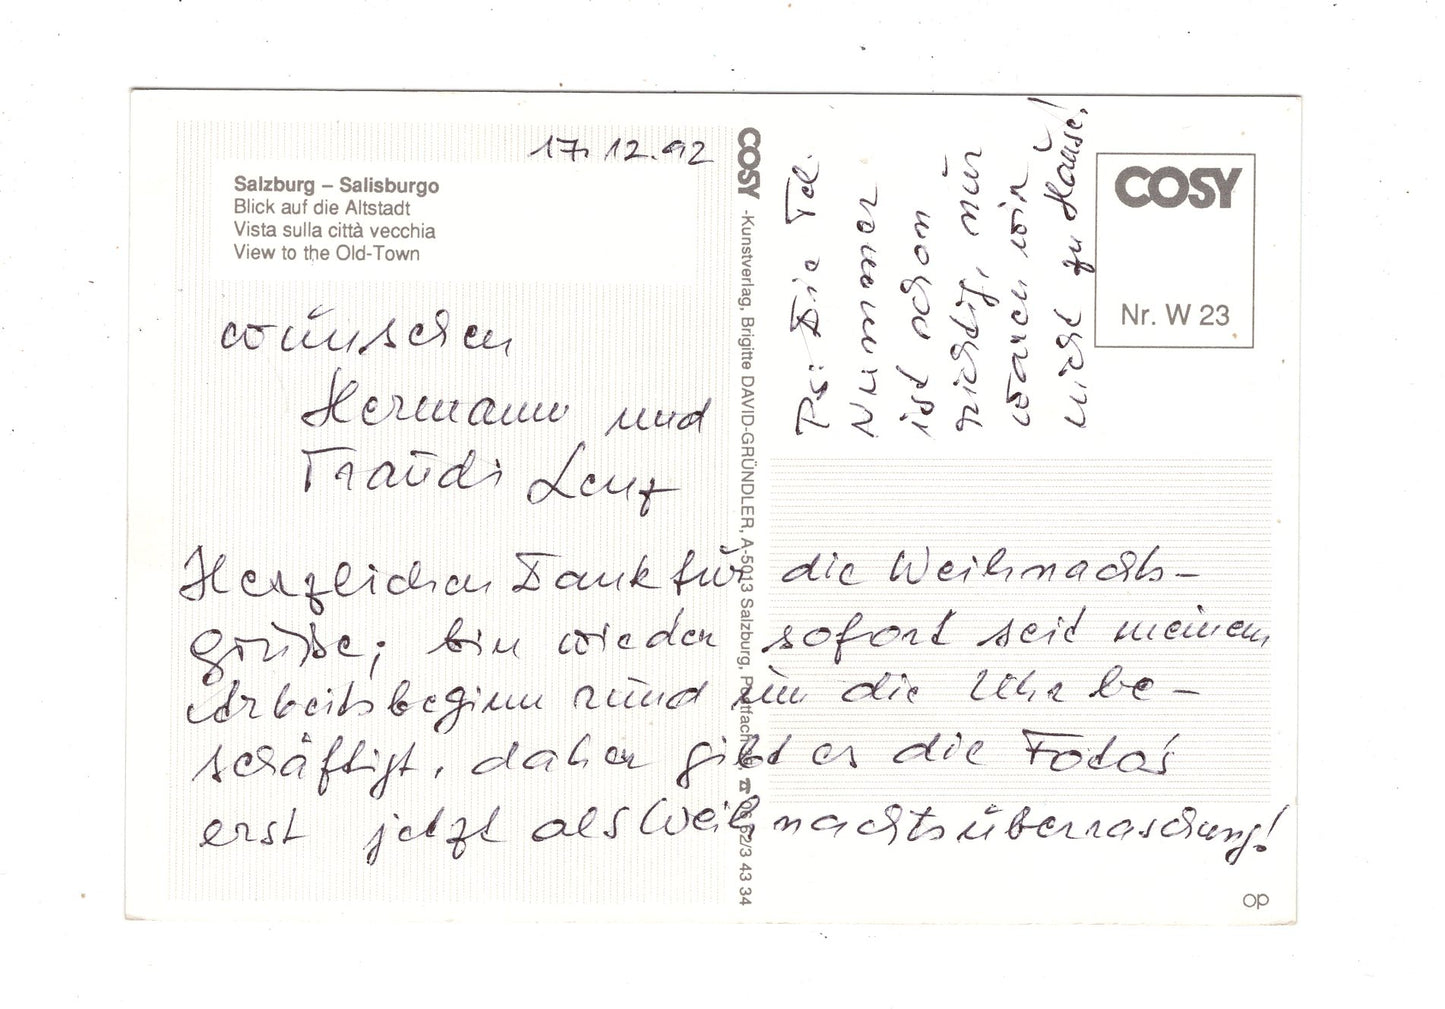 17.12.92
Salzburg – Salisburgo
Blick auf die Altstadt
Vista sulla città vecchia
View to the Old-Town
wünschen
Hermann und
Traudi Lenz
Herzlichen Dank für die Weihnachts-
grüße; bin wieder sofort seit meinem
Arbeitsbeginn rund um die Uhr be-
schäftigt, daher gibt es die Foto's
erst jetzt als Weihnachtsüberraschung!
COSY -Kunstverlag, Brigitte DAVID-GRÜNDLER, A-5013 Salzburg, Postfach ☎ 06 62/3 43 34
Ps: Die Tel.
Nummer
ist schon
richtig, nur
waren wir
nicht zu Hause!
COSY
Nr. W 23
op